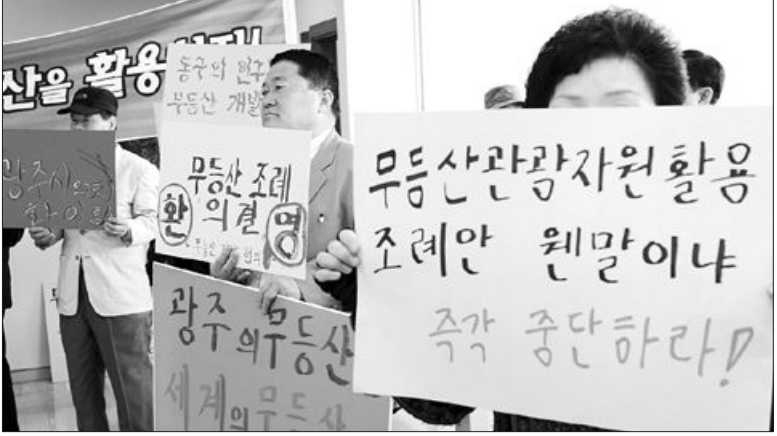 산을 활용
동구의
무등산 개발
광주시
무등산 조례
환 의결 명
광주의 무등산
세계의 무등산
무등산관광자원활용
조례안 웬말이냐
즉각 중단하라!